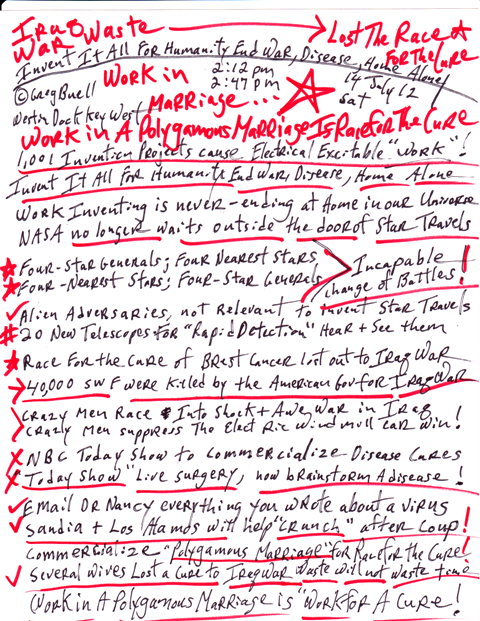 Iraq Waste → Lost The Race
War For The Cure
Invent It All For Humanity End War, Disease, Home Alone!
Work in 2:12 pm 14 July 12
©Greg Buell 2:47 pm Sat
Werth Dock Key West Marriage...
Work in A Polygamous Marriage Is Race for The Cure
1,001 Invention Projects cause Electrical Excitable "work"!
Invent It All For Humanity End War, Disease, Home Alone
Work Inventing is never-ending at Home in our Universe
NASA no longer waits outside the door of Star Travels
Four-Star Generals; Four Nearest Stars Incapable
Four-Nearest Stars; Four-Star Generals change of Battles!
Alien Adversaries, not Relevant to Invent Star Travels
# 20 New Telescopes for "Rapid Detection" Hear + See them
Race For the Cure of Brest Cancer lost out to Iraq War
40,000 SWF were killed by the American Gov for Iraq War
Crazy Men Race Into Shock + Awe, War in Iraq
Crazy Men suppress The Elect Ric Windmill car Win!
NBC Today Show to Commercialize Disease Cures
Today Show "Live surgery, now brainstorm a disease!
Email Dr Nancy everything you wrote about a virus
Sandia + Los Alamos will help "crunch" after coup!
Commercialize "Polygamous Marriage" for Race for The Cure!
Several Wives Lost a Cure to Iraq War Waste will not waste time
Work in A Polygamous Marriage is "Work for A Cure!